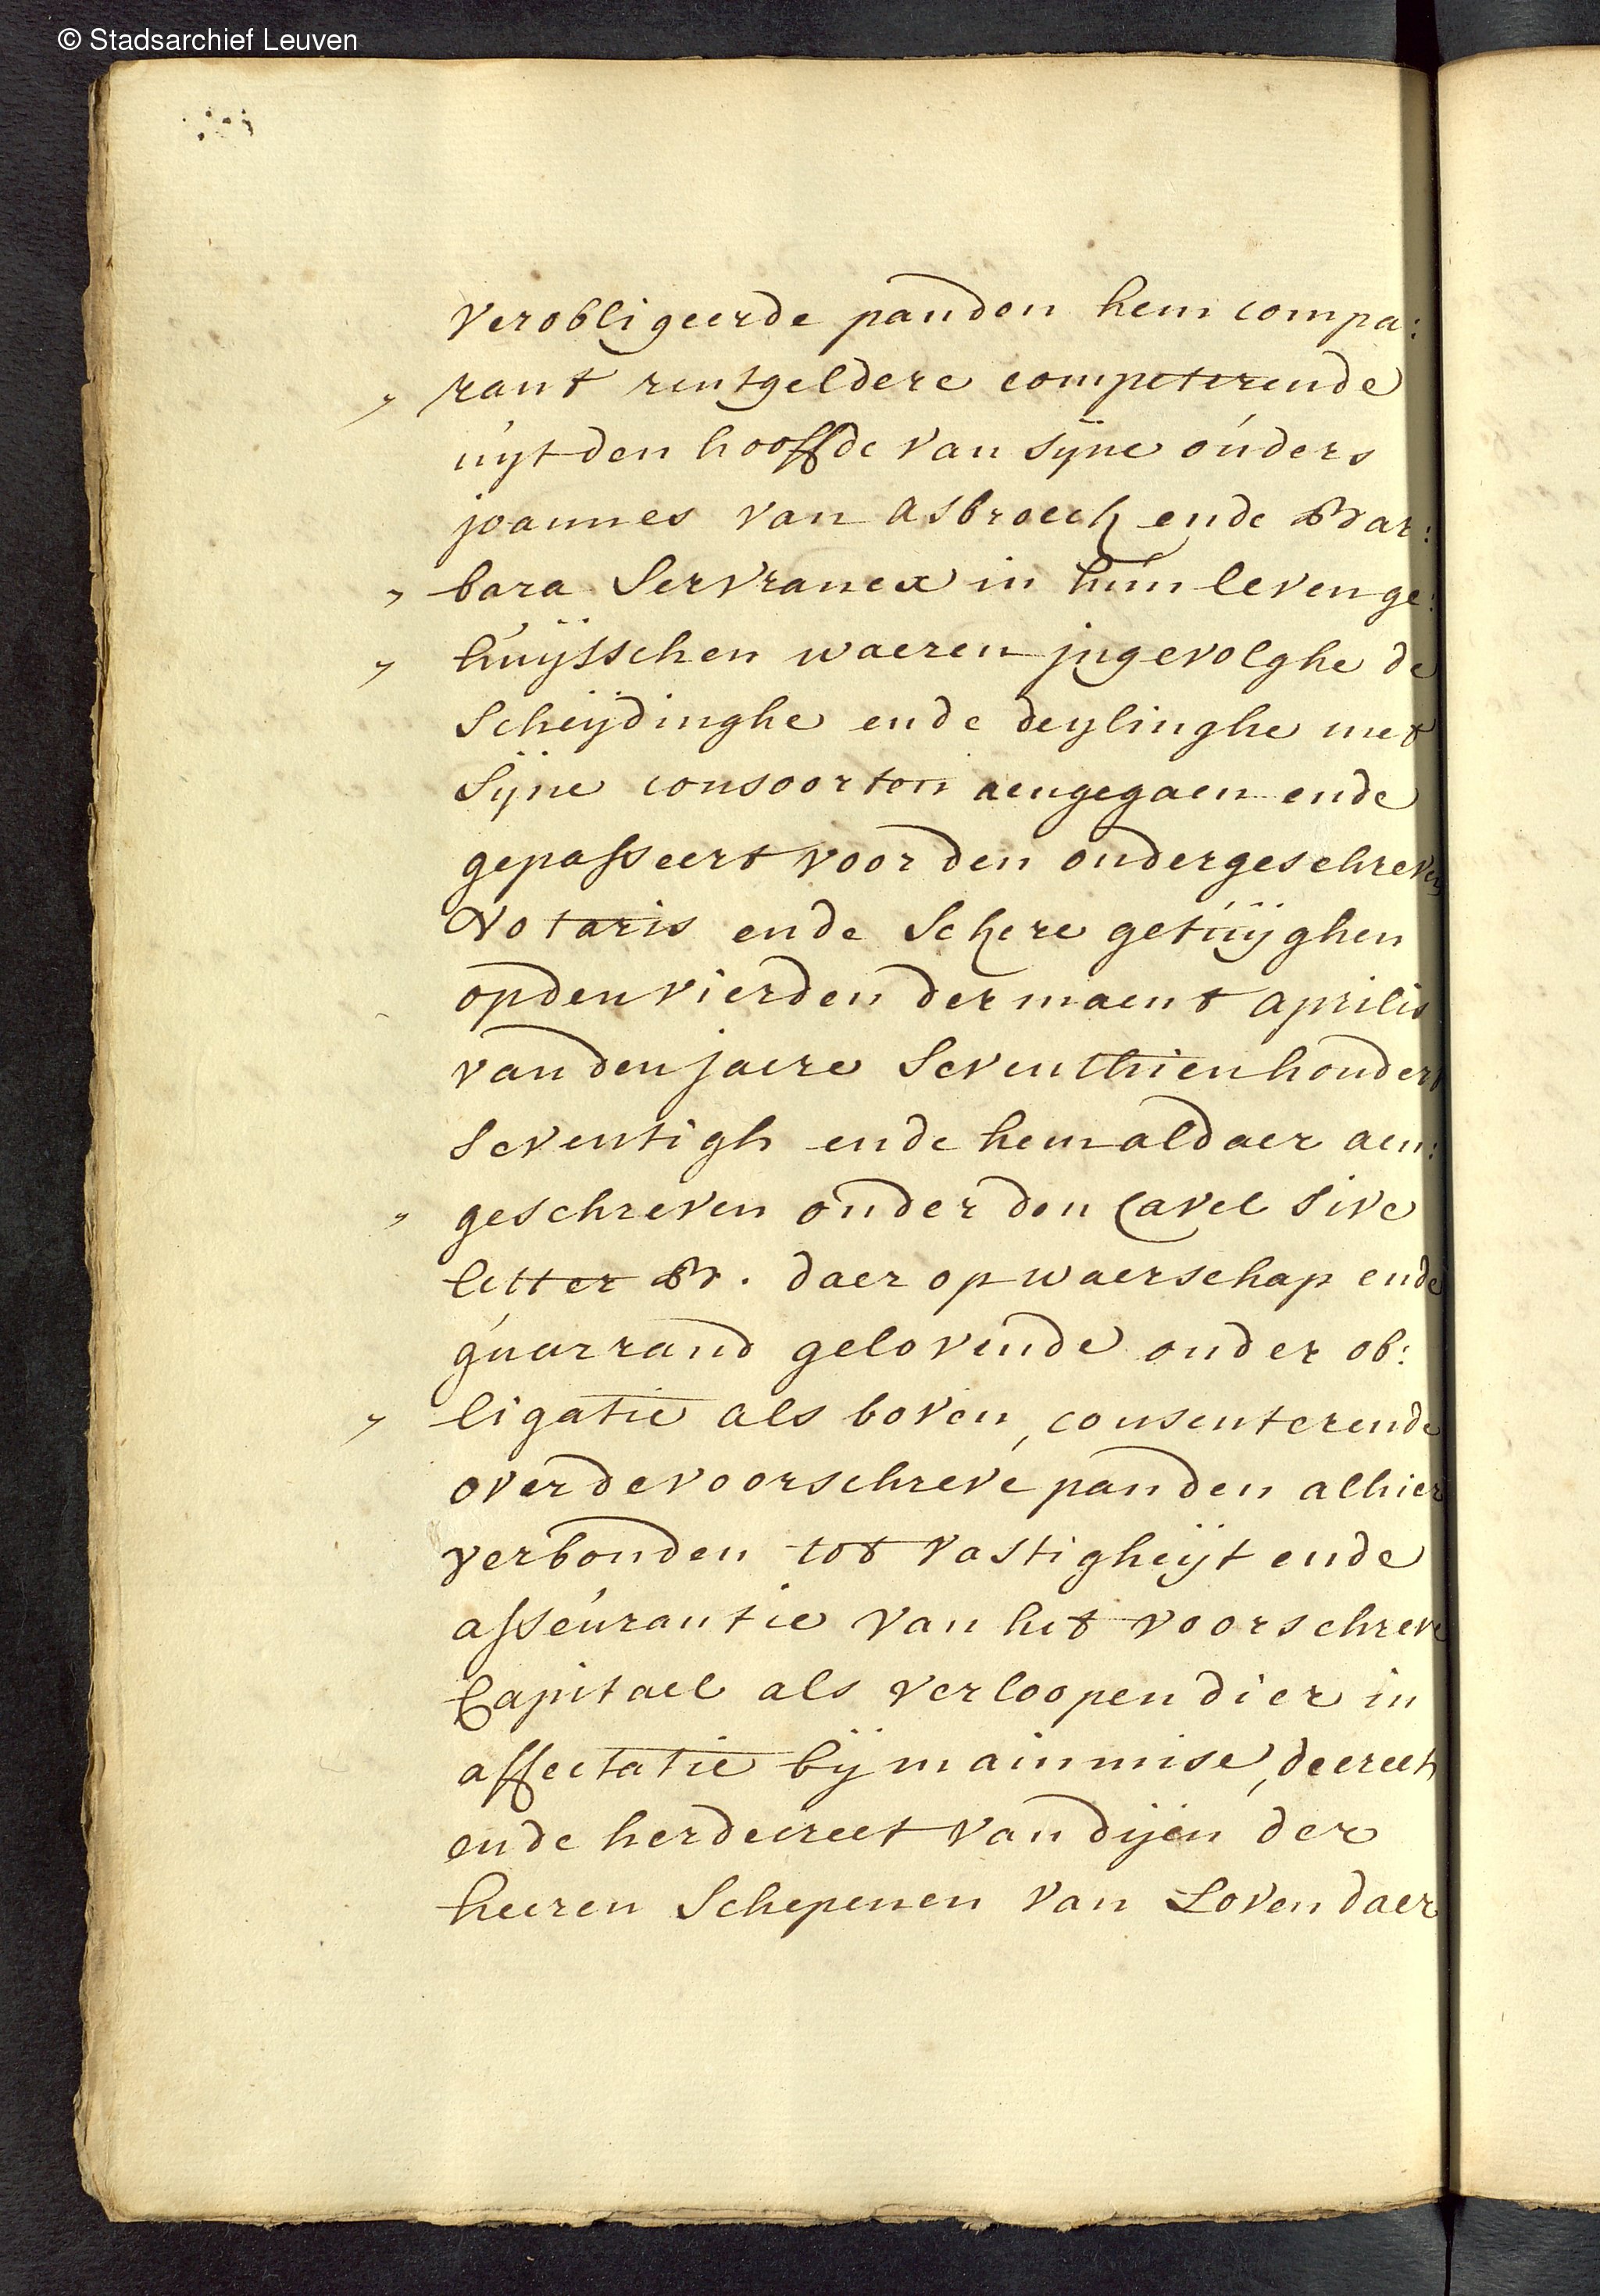 © Stadsarchief Leuven
verobligeerde panden hem compa:
rant rentgeldere competerende
uijt den hooffde van sijne ouders
joannes van asbroeck ende Bar:
bara Servranex in hun leven ge:
huijsschen waeren jngevolghe de
Scheijdinghe ende deijlinghe met
Sijne consoorten aengegaen ende
gepasseert voor den ondergeschreven
Notaris ende Sekere getuijghen
op den vierden der maent aprilis
van den jaere Seventhien hondert
Seventigh ende hem aldaer aen:
geschreven onder den Cavel sive
letter B. daer op waerschap ende
guarrand gelovende onder ob:
ligatie als boven, consenterende
over de voorschreve panden alhier
verbonden tot vastigheijt ende
asseurantie van het voorschreve
Capitael als verloopen dier in
affectatie bij mainmise, decreet
ende herdecreet van dijen der
heeren Schepenen van Loven daer